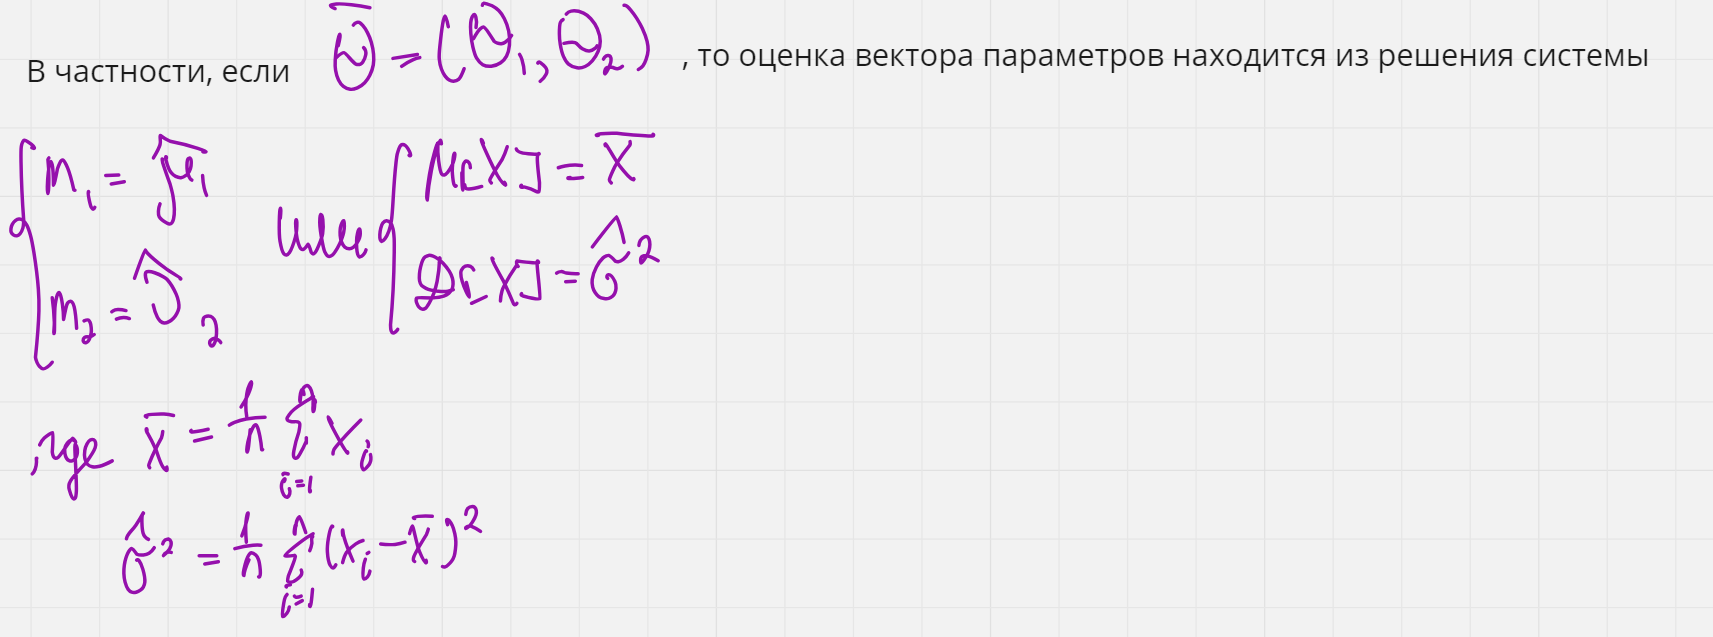 В частности, если θ̅ = (θ₁, θ₂) , то оценка вектора параметров находится из решения системы
{ m₁ = μ̂₁ или { M[X] = X̅
m₂ = ν̂₂ D[X] = σ̂²
, где X̅ = 1/n ∑ᵢ₌₁ⁿ Xᵢ
σ̂² = 1/n ∑ᵢ₌₁ⁿ (Xᵢ – X̅)²